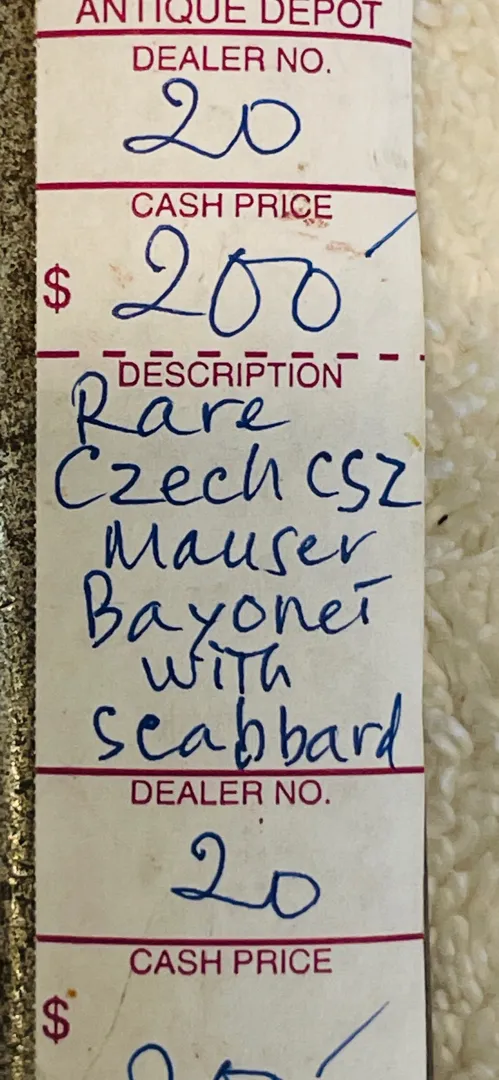 ANTIQUE DEPOT
DEALER NO.
20
CASH PRICE
$ 200
DESCRIPTION
Rare
Czech CSZ
Mauser
Bayonet
with
scabbard
DEALER NO.
20
CASH PRICE
$